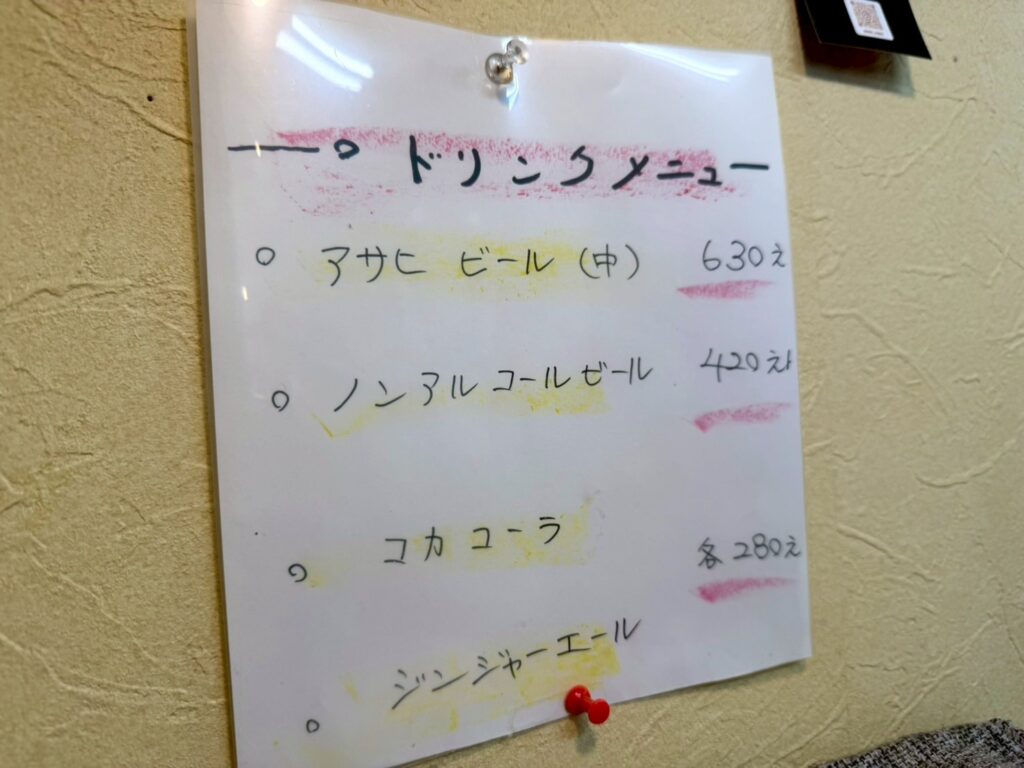 ドリンクメニュー
アサヒ ビール (中) 630え
ノンアルコールビール 420え
コカコーラ 各280え
ジンジャーエール